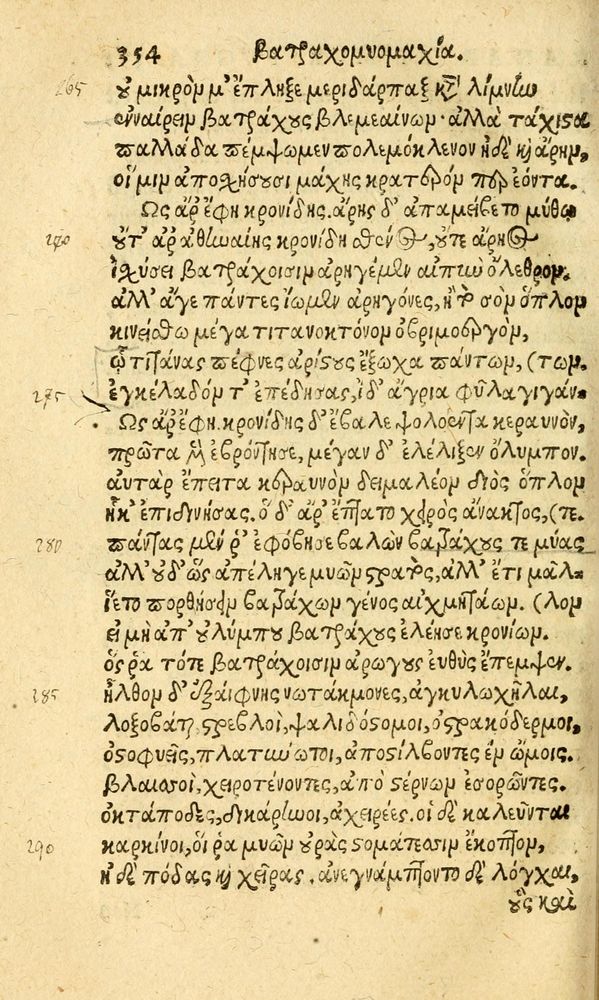 354 βατραχομυομαχία.
265 οὐ μικρόμ μ' ἔπληξε μεριδάρπαξ κατὰ λίμνην
ἐνναίρειμ βατράχους βλεμεαίνωμ· ἀλλὰ τάχιστα
παλλάδα πέμψωμεν πολεμόκλονον ἠδὲ καὶ ἄρημ,
οἵ μιμ ἀποσχήσουσι μάχης κρατερόμ περ ἐόντα.
Ὣς ἄρ' ἔφη κρονίδης. ἄρης δ' ἀπαμείβετο μύθῳ
270 οὔτ' ἄρ' ἀθηναίης κρονίδη σθένος, οὔτε ἄρηος
ἰσχύσει βατράχοισιμ ἀρηγέμεν αἰπὺν ὄλεθρομ.
ἀλλ' ἄγε πάντες ἴωμεν ἀρηγόνες, ἢ τὸ σὸμ ὅπλομ
κινείσθω μέγα τιτανοκτόνομ ὀβριμοεργόμ,
ᾧ τιτᾶνας πέφνες ἀρίστους ἔξωχα πάντωμ, (τωμ.
275 ἐγκέλαδόμ τ' ἐπέδησας, ἰδ' ἄγρια φῦλα γιγάν-
Ὣς ἄρ' ἔφη. κρονίδης δ' ἔβαλε ψολόεντα κεραυνόν,
πρῶτα μὲν ἐβρόντησε, μέγαν δ' ἐλέλιξεν ὄλυμπον.
αὐτὰρ ἔπειτα κεραυνὸμ δειμαλέομ διὸς ὅπλομ
ἧκ' ἐπιδινήσας. ὁ δ' ἄρ' ἔπτατο χειρὸς ἄνακτος, (τε.
280 πάντας μέν ῥ' ἐφόβησε βαλὼν βατράχους τε μύας
ἀλλ' οὐδ' ὣς ἀπέληγε μυῶμ στρατός, ἀλλ' ἔτι μᾶλ-
ἵετο πορθήσειμ βατράχωμ γένος αἰχμητάωμ. (λομ
εἰ μὴ ἀπ' οὐλύμπου βατράχους ἐλέησε κρονίωμ.
ὅς ῥα τότε βατράχοισιμ ἀρωγοὺς εὐθὺς ἔπεμψεν.
285 ἦλθομ δ' ἐξαίφνης νωτάκμονες, ἀγκυλωχῆλαι,
λοξοβάται, στρεβλοί, ψαλιδόστομοι, ὀστρακόδερμοι,
ὀστοφυεῖς, πλατυνωτοι, ἀποστίλβοντες ἐμ ὤμοις.
βλαισοί, χειροτένοντες, ἀπὸ στέρνωμ ἐσορῶντες.
ὀκτάποδες, δικάρηνοι, ἀχειρέες. οἱ δὲ καλεῦνται
290 καρκίνοι, οἵ ῥα μυῶμ οὐρὰς στομάτεσσιμ ἔκοπτομ,
ἠδὲ πόδας καὶ χεῖρας. ἀνεγνάμπτοντο δὲ λόγχαι,
οὓς καὶ